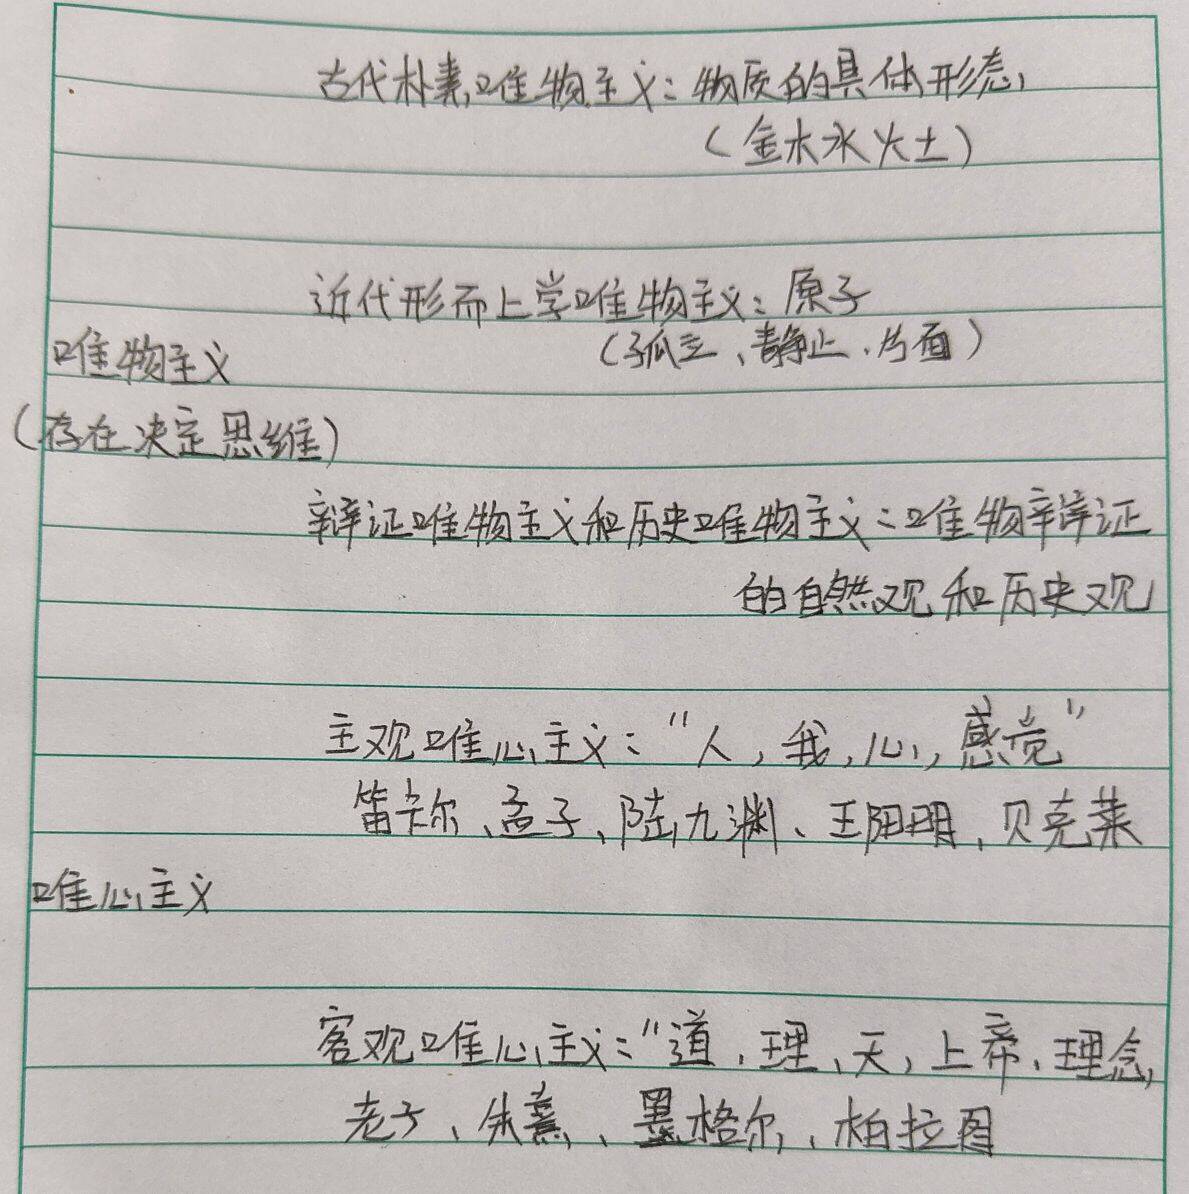 古代朴素唯物主义：物质的具体形态，
（金木水火土）
近代形而上学唯物主义：原子
（孤立、静止、片面）
唯物主义
（存在决定思维）
辩证唯物主义和历史唯物主义：唯物辩证
的自然观和历史观
主观唯心主义：“人，我，心，感觉”
笛卡尔、孟子、陆九渊、王阳明、贝克莱
唯心主义
客观唯心主义：“道、理、天，上帝、理念，
老子、朱熹、墨格尔、柏拉图